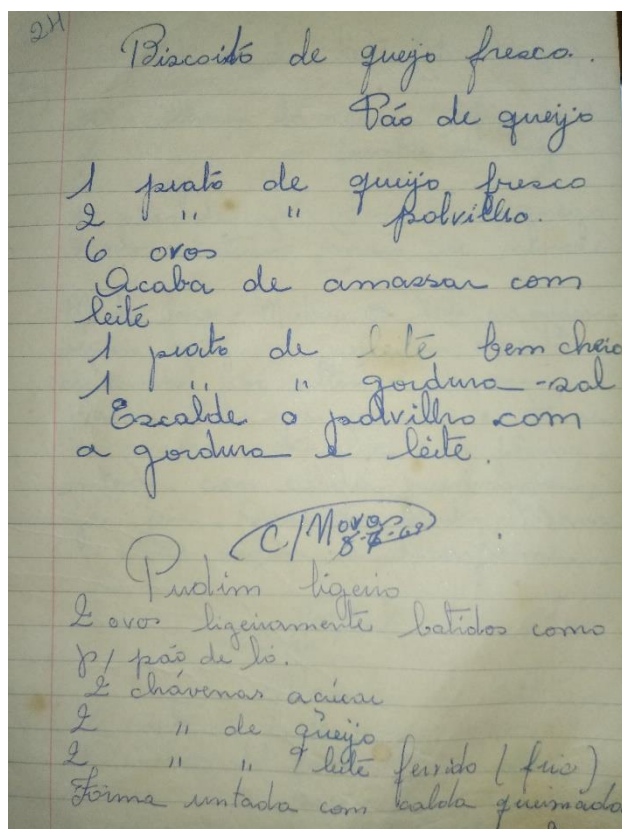 24
Biscoito de queijo fresco.
Pão de queijo
1 prato de queijo fresco
2 " " " polvilho.
6 ovos
Acaba de amassar com
leite
1 prato de leite bem cheio
1 " " gordura - sal
Escalde o polvilho com
a gordura e leite.
C/Novas
8-7-69
Pudim ligeiro
2 ovos ligeiramente batidos como
p/ pão de ló.
2 chávenas açúcar
2 " de queijo
2 " " leite fervido (frio)
Forma untada com calda queimada